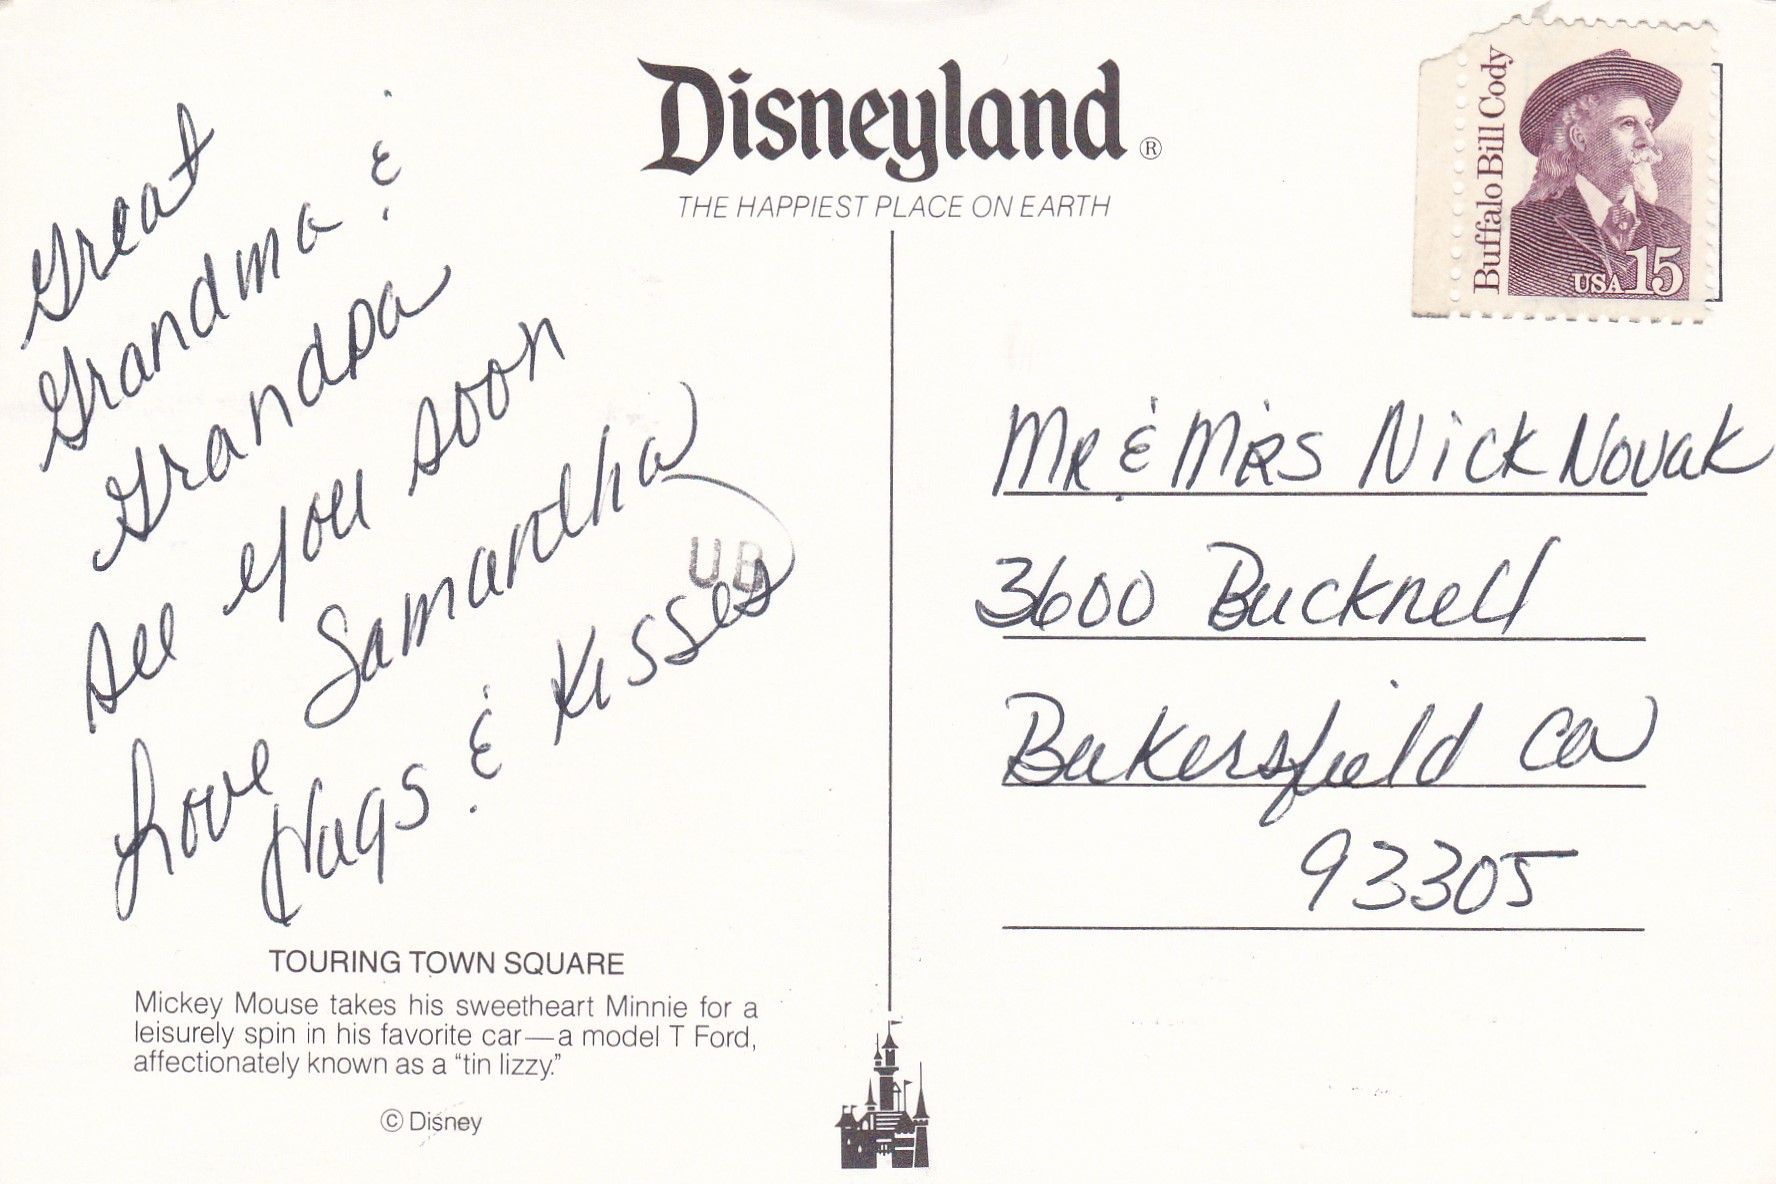 Disneyland ®
THE HAPPIEST PLACE ON EARTH
Great
Grandma &
Grandpa
See you soon
Love Samantha
Hugs & Kisses
UB
TOURING TOWN SQUARE
Mickey Mouse takes his sweetheart Minnie for a
leisurely spin in his favorite car—a model T Ford,
affectionately known as a “tin lizzy.”
© Disney
Buffalo Bill Cody
USA 15
MR & MRS Nick Novak
3600 Bucknell
Bakersfield Ca
93305